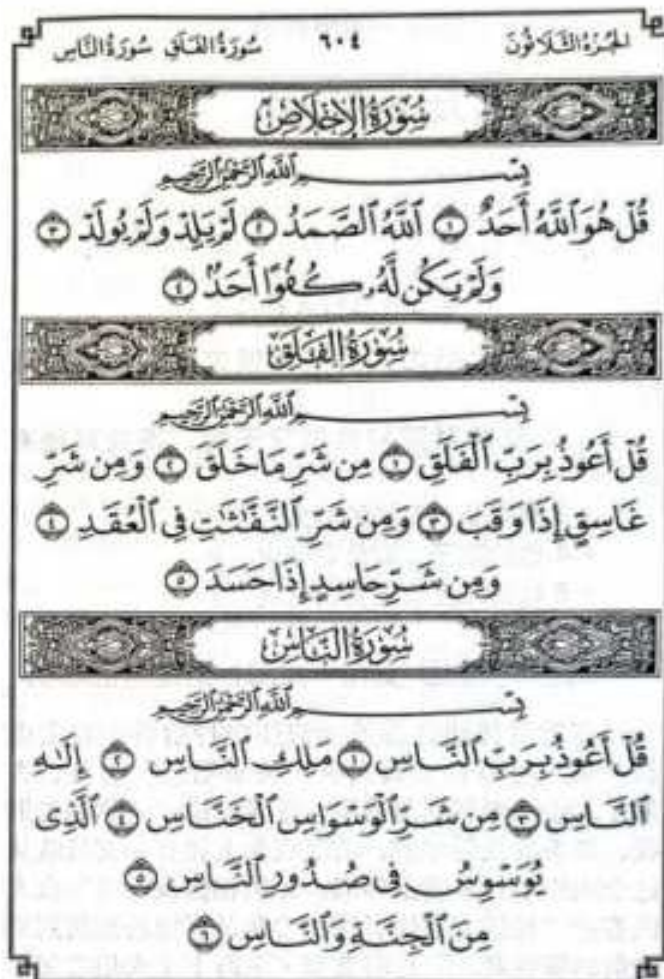 الجزء الثلاثون ٦٠٤ سورة الفلق سورة الناس
سُورَةُ الإِخْلَاصِ
بِسْمِ ٱللَّهِ ٱلرَّحْمَٰنِ ٱلرَّحِيمِ
قُلْ هُوَ ٱللَّهُ أَحَدٌ ١ ٱللَّهُ ٱلصَّمَدُ ٢ لَمْ يَلِدْ وَلَمْ يُولَدْ ٣
وَلَمْ يَكُن لَّهُۥ كُفُوًا أَحَدٌۢ ٤
سُورَةُ الفَلَقِ
بِسْمِ ٱللَّهِ ٱلرَّحْمَٰنِ ٱلرَّحِيمِ
قُلْ أَعُوذُ بِرَبِّ ٱلْفَلَقِ ١ مِن شَرِّ مَا خَلَقَ ٢ وَمِن شَرِّ
غَاسِقٍ إِذَا وَقَبَ ٣ وَمِن شَرِّ ٱلنَّفَّٰثَٰتِ فِى ٱلْعُقَدِ ٤
وَمِن شَرِّ حَاسِدٍ إِذَا حَسَدَ ٥
سُورَةُ النَّاسِ
بِسْمِ ٱللَّهِ ٱلرَّحْمَٰنِ ٱلرَّحِيمِ
قُلْ أَعُوذُ بِرَبِّ ٱلنَّاسِ ١ مَلِكِ ٱلنَّاسِ ٢ إِلَٰهِ
ٱلنَّاسِ ٣ مِن شَرِّ ٱلْوَسْوَاسِ ٱلْخَنَّاسِ ٤ ٱلَّذِى
يُوَسْوِسُ فِى صُدُورِ ٱلنَّاسِ ٥
مِنَ ٱلْجِنَّةِ وَٱلنَّاسِ ٦